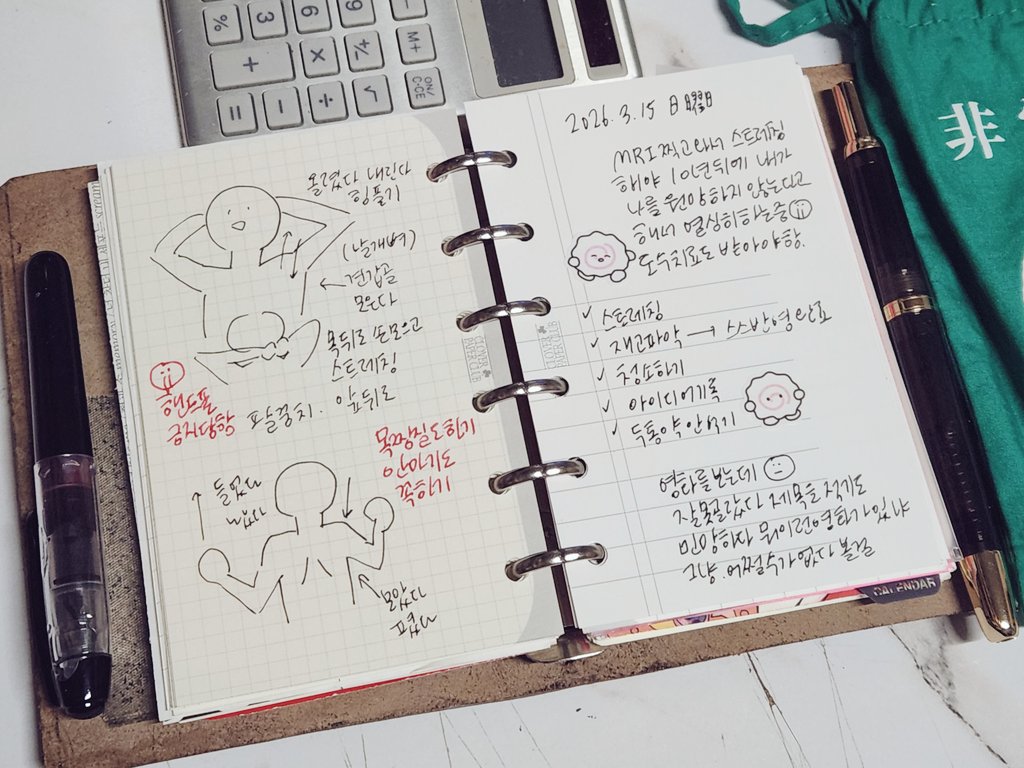 올렸다 내린다
힘풀기
(날개뼈)
← 견갑골
모은다
목뒤로 손모으고
스트레칭
팔꿈치. 앞뒤로
핸드폰
금지당함
목찜질도하기
안아프기
꼭하기
↑ 들었다
놨다
모았다
폈다
2026. 3. 15 日曜日
MRI찍고와서 스트레칭
해야 10년뒤에 내가
나를 원망하지 않는다고
해서 열심히하는중
도수치료도 받아야함.
✓ 스트레칭
✓ 재고파악 → 스스반영완료
✓ 청소하기
✓ 아이디어기록
✓ 두통약 안먹기
영화를 보는데
잘못골랐다 제목을 적기도
미안하다 뭐이런영화가 있냐
그냥. 어쩔수가없다 볼걸
CALENDAR
非
%
3
6
9
−
+
×
+/-
M+
=
−
÷
√
ON/C·CE